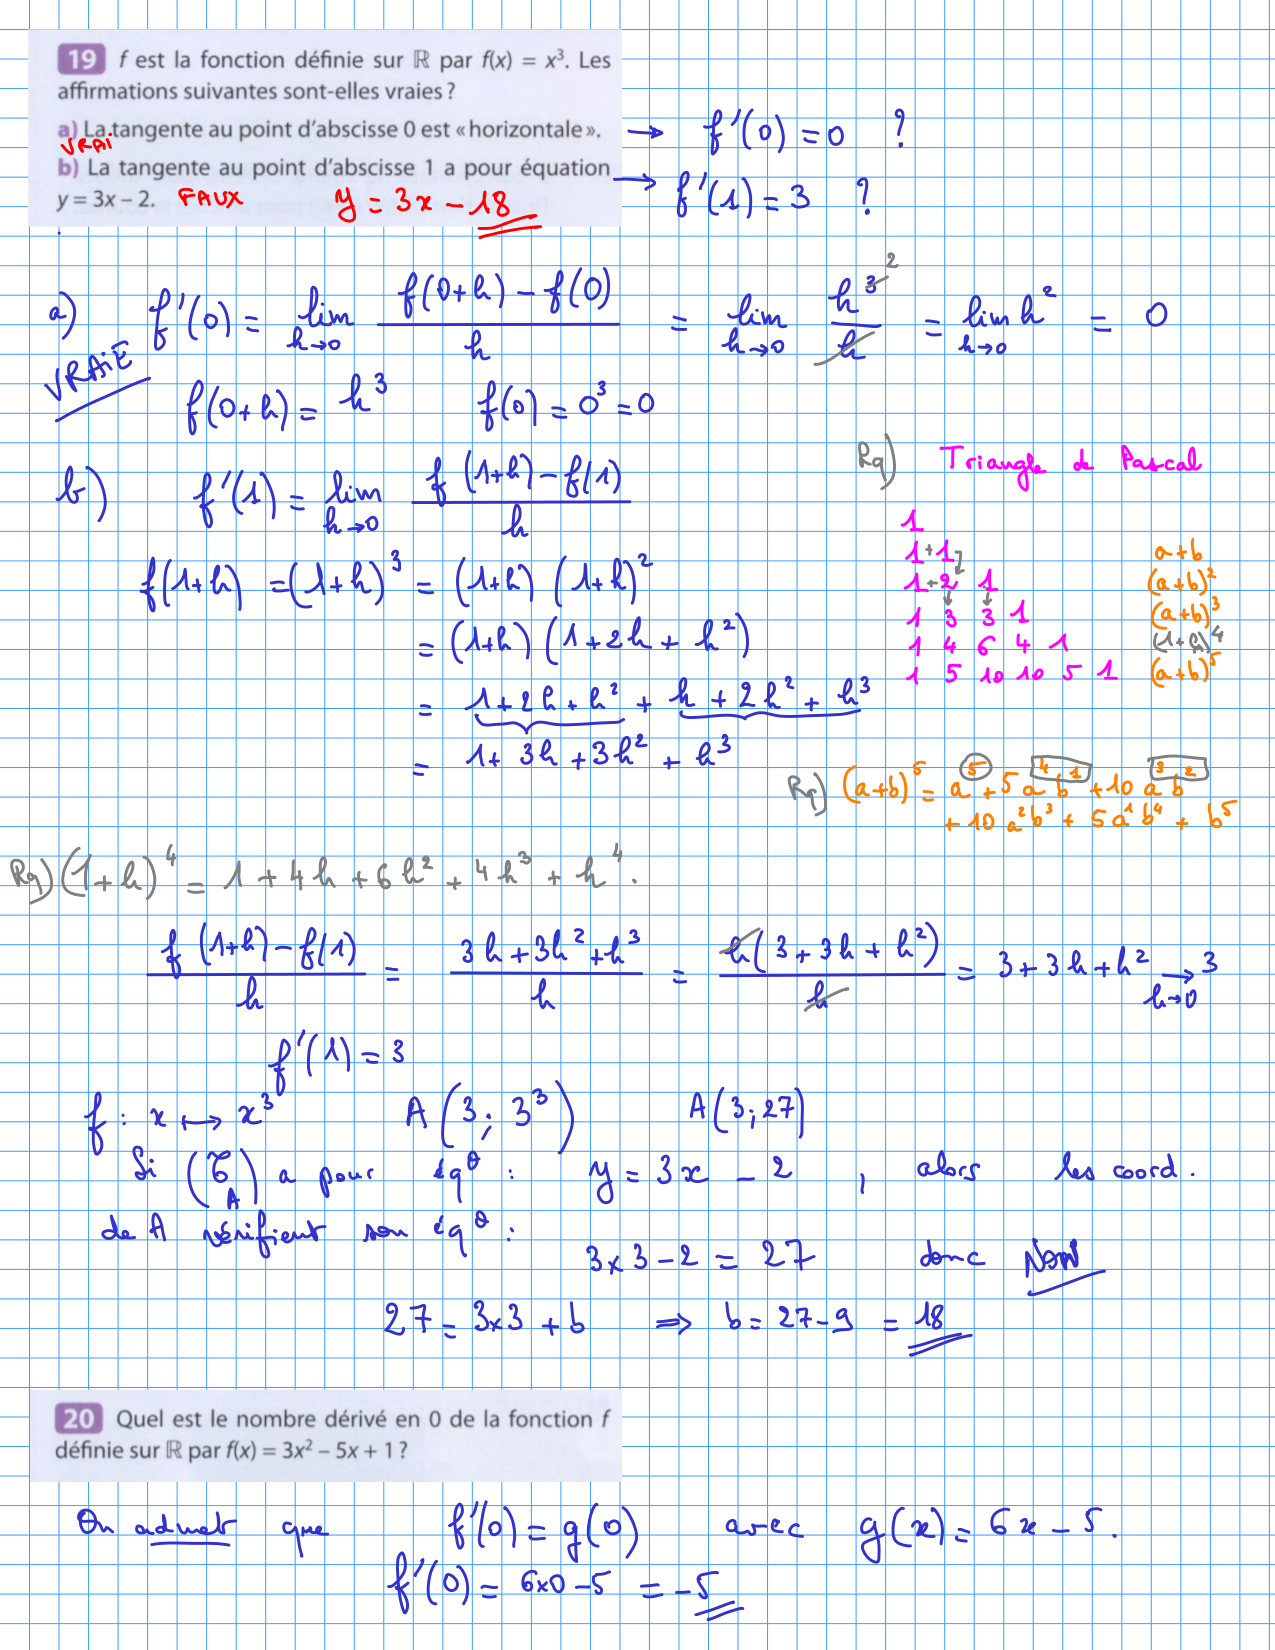 19 f est la fonction définie sur ℝ par f(x) = x³. Les
affirmations suivantes sont-elles vraies ?
a) La tangente au point d'abscisse 0 est « horizontale ». → f'(0) = 0 ?
VRAI
b) La tangente au point d'abscisse 1 a pour équation → f'(1) = 3 ?
y = 3x – 2. FAUX y = 3x – 18
a) f'(0) = lim h→0 (f(0+h) – f(0))/h = lim h→0 h³/h 2 = lim h→0 h² = 0
VRAIE
f(0+h) = h³ f(0) = 0³ = 0
b) f'(1) = lim h→0 (f(1+h) – f(1))/h
f(1+h) = (1+h)³ = (1+h) (1+h)²
= (1+h) (1 + 2h + h²)
= 1 + 2h + h² + h + 2h² + h³
= 1 + 3h + 3h² + h³
Rq) Triangle de Pascal
1
1 + 1 a+b
1 + 2 1 (a+b)²
1 3 3 1 (a+b)³
1 4 6 4 1 (1+h)⁴
1 5 10 10 5 1 (a+b)⁵
Rq) (a+b)⁵ = a⁵ + 5a⁴b¹ + 10a³b²
+ 10a²b³ + 5a¹b⁴ + b⁵
Rq) (1+h)⁴ = 1 + 4h + 6h² + 4h³ + h⁴.
(f(1+h) – f(1))/h = (3h + 3h² + h³)/h = h(3 + 3h + h²)/h = 3 + 3h + h² → h→0 3
f'(1) = 3
f : x ↦ x³ A(3 ; 3³) A(3 ; 27)
Si (𝒯A) a pour éq° : y = 3x – 2 , alors les coord.
de A vérifient son éq° :
3×3 – 2 = 27 donc NON
27 = 3×3 + b ⇒ b = 27 – 9 = 18
20 Quel est le nombre dérivé en 0 de la fonction f
définie sur ℝ par f(x) = 3x² – 5x + 1 ?
On admet que f'(0) = g(0) avec g(x) = 6x – 5.
f'(0) = 6×0 – 5 = –5